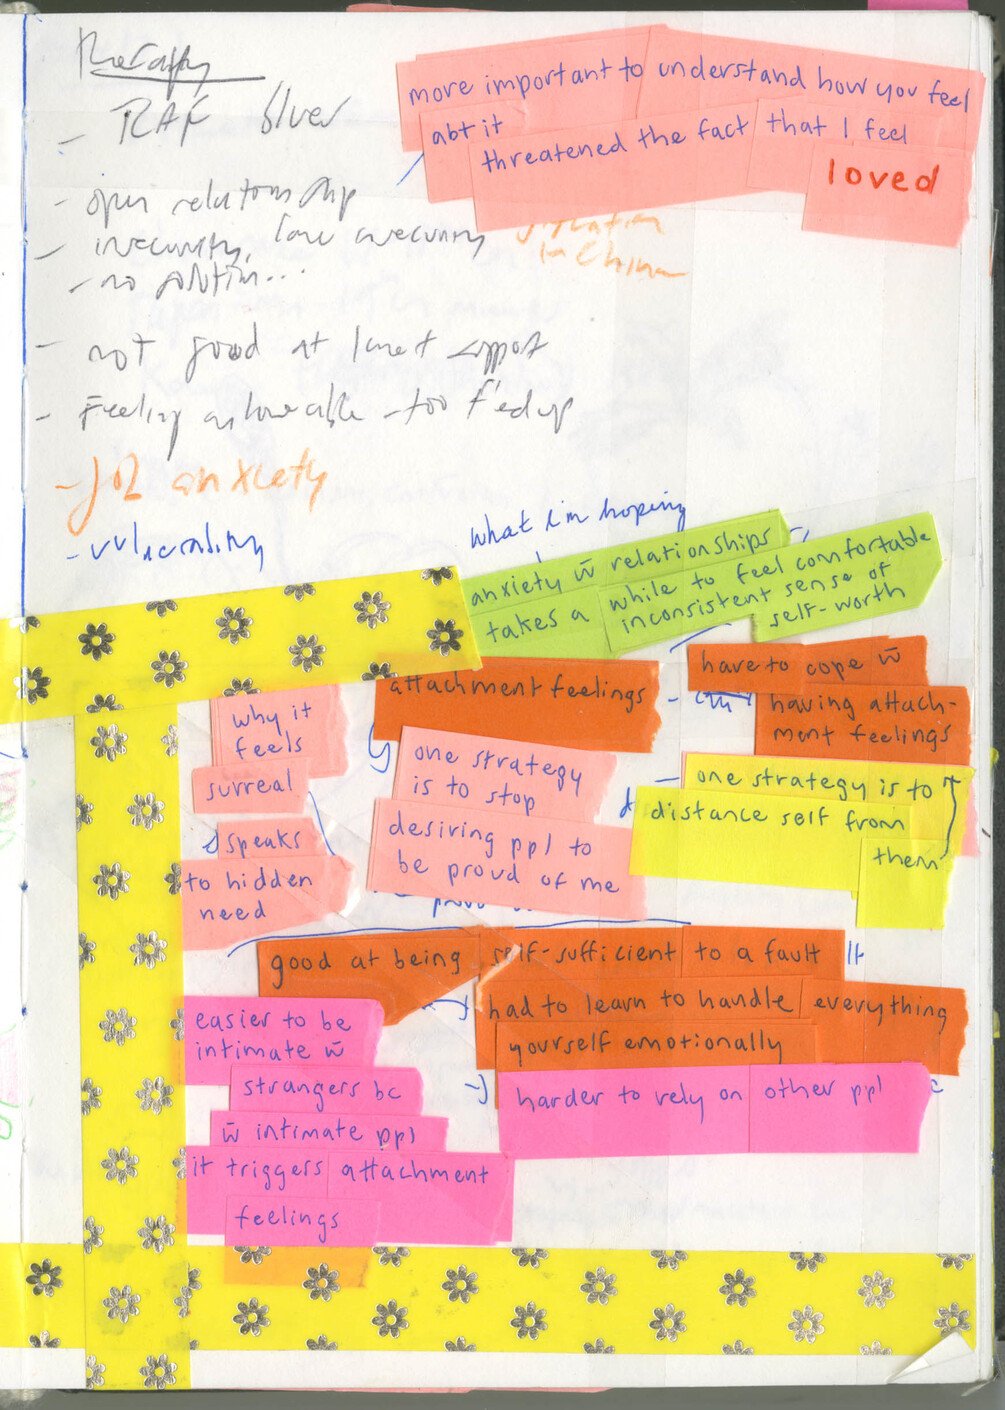 therapy
- RAF
more important to understand how you feel
abt it
threatened the fact that I feel
loved
- open relationship
- insecurity,
in China
- no solution...
- not good at support
- Feeling unloveable - too f'ed up
- job anxiety
- vulnerability
what i'm hoping
anxiety w̄ relationships
takes a while to feel comfortable
inconsistent sense of
self-worth
attachment feelings
have to cope w̄
having attach-
ment feelings
why it
feels
surreal
speaks
to hidden
need
one strategy
is to stop
desiring ppl to
be proud of me
one strategy is to
distance self from
them
good at being self-sufficient to a fault
had to learn to handle everything
yourself emotionally
harder to rely on other ppl
easier to be
intimate w̄
strangers bc
w̄ intimate ppl
it triggers attachment
feelings